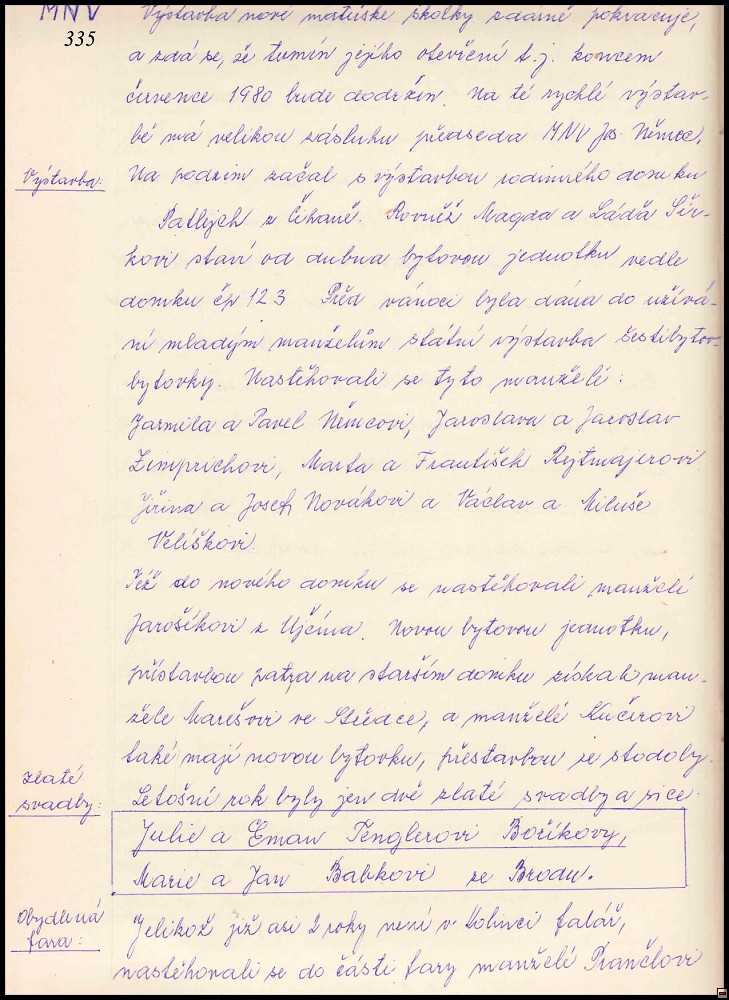 MNV
335
Výstavba nové matéřské školky zdárně pokračuje,
a zdá se, že termín jejího otevření t.j. koncem
července 1980 bude dodržen. Na té rychlé výstav-
bě má velikou zásluhu předseda MNV Jos. Němec.
Výstavba:
Na podzim začal s výstavbou rodinného domku
Patlejch z Čihaně. Rovněž Magda a Láďa Šír-
kovi staví od dubna bytovou jednotku vedle
domku čp 123 Před vánoci byla dána do užívá-
ní mladým manželům státní výstavba šestibytov-
bytovky. Nastěhovali se tyto manželé:
Jarmila a Pavel Němcovi, Jaroslava a Jaroslav
Zimprichovi, Marta a František Rejtmajerovi
Jiřina a Josef Novákovi a Václav a Miluše
Velíškovi.
Též do nového domku se nastěhovali manželé
Jarošíkovi z Ujčína. Novou bytovou jednotku,
přístavbou patra na starším domku získali man-
želé Marešovi ve Středce, a manželé Kučerovi
také mají novou bytovku, přestavbou ze stodoly.
zlaté
svadby:
Letošní rok byly jen dvě zlaté svadby a sice:
Julie a Eman Tenglerovi Boříkovy,
Marie a Jan Babkovi ze Brodu.
Obydlená
fara:
Jelikož již asi 2 roky není v Kolinci falář,
nastěhovali se do části fary manželé Prančlovi